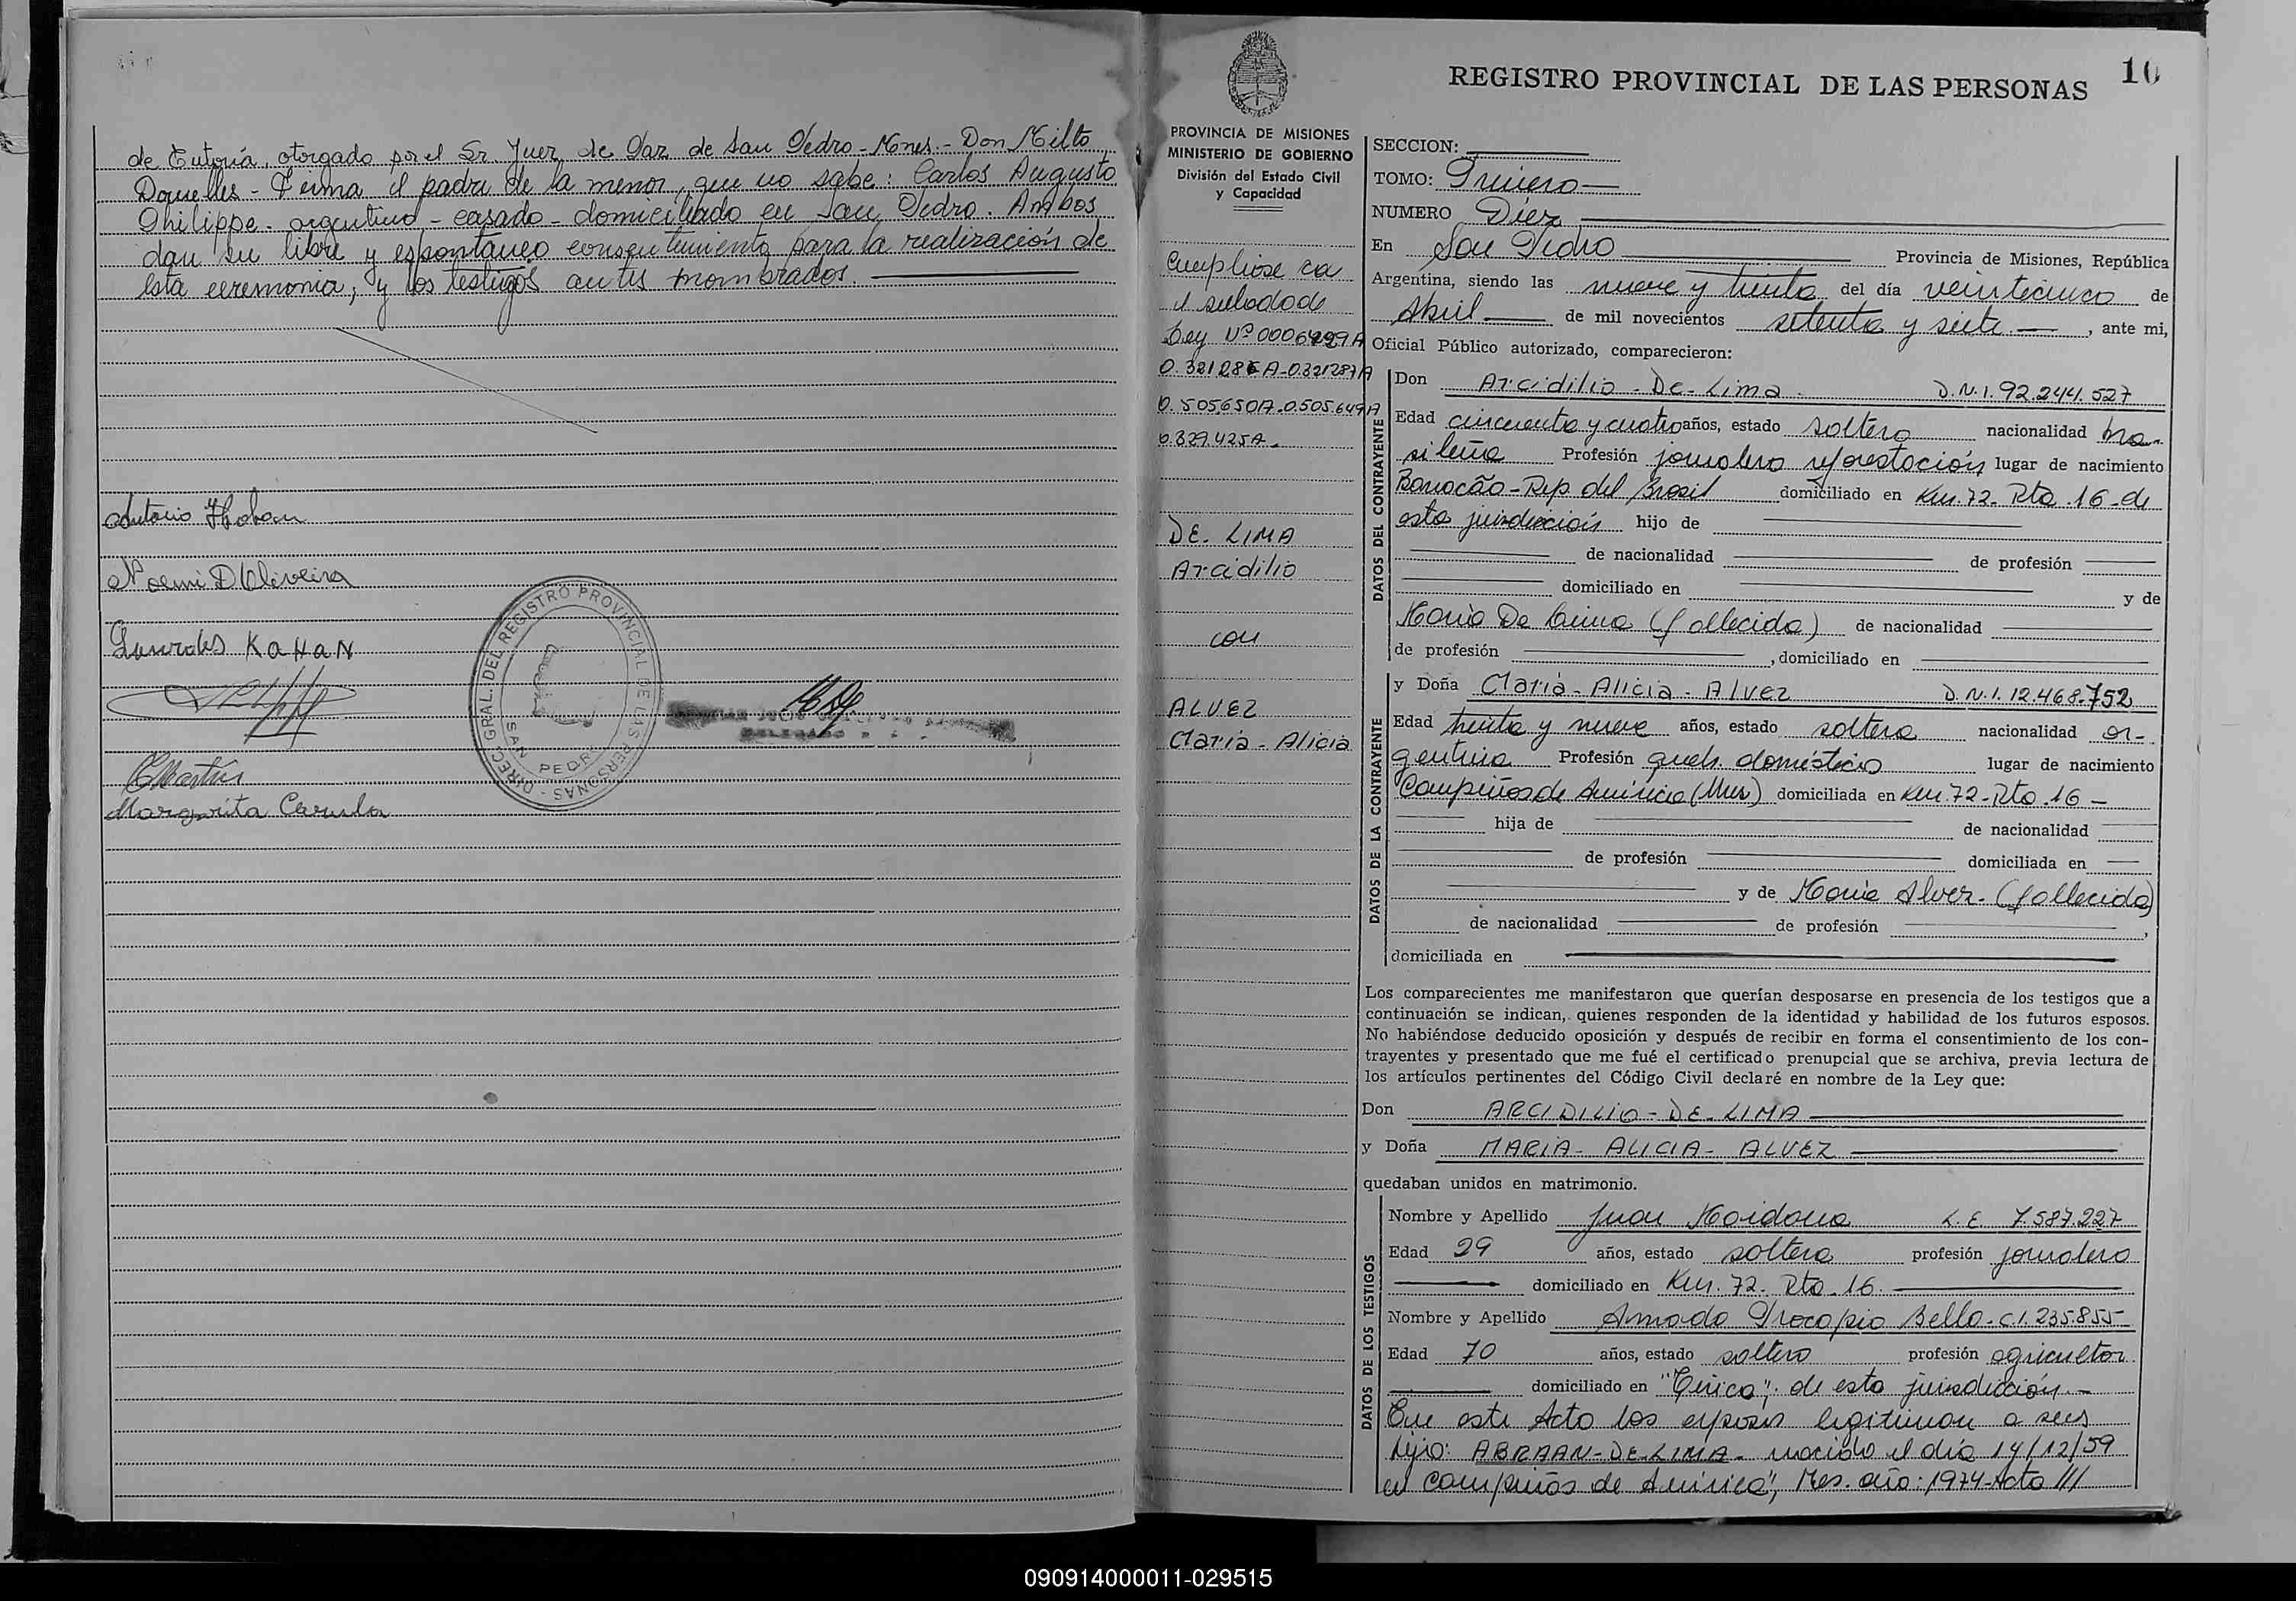 de Tutoría, otorgado por el Sr. Juez de Paz de San Pedro - Mnes. - Don Milto
Dornelles - Firma el padre de la menor, que no sabe: Carlos Augusto
Philippe - argentino - casado - domiciliado en San Pedro. Ambos
dan su libre y espontáneo consentimiento para la realización de
esta ceremonia, y los testigos antes nombrados.
Noemi D'Oliveira
Lourdes KaHaN
Margarita
DIREC. GRAL. DEL REGISTRO PROVINCIAL DE LAS PERSONAS -
SAN PEDRO
REGISTRO PROVINCIAL DE LAS PERSONAS
10
PROVINCIA DE MISIONES
MINISTERIO DE GOBIERNO
División del Estado Civil
y Capacidad
el sellado de
Ley Nº
0.505650A-0.505.649A
0.329.425A-
DE-LIMA
Arcidilio
con
ALVEZ
María-Alicia
SECCION:
TOMO: Primero
NUMERO Diez
En San Pedro Provincia de Misiones, República
Argentina, siendo las nueve y treinta del día veinticinco de
Abril de mil novecientos setenta y siete, ante mi,
Oficial Público autorizado, comparecieron:
DATOS DEL CONTRAYENTE
Don Arcidilio - De - Lima D.N.I. 92.244.527
Edad cincuenta y cuatro años, estado soltero nacionalidad bra-
sileña Profesión jornalero reforestación lugar de nacimiento
Rep. del Brasil domiciliado en Km. 72- Rta. 16- de
esta jurisdicción hijo de
de nacionalidad de profesión
domiciliado en y de
María De Lima (fallecida) de nacionalidad
de profesión , domiciliado en
DATOS DE LA CONTRAYENTE
y Doña María - Alicia - Alvez D.N.I. 12.468.752
Edad treinta y nueve años, estado soltera nacionalidad ar-
gentina Profesión queh. doméstico lugar de nacimiento
Campiñas de América (Mnes) domiciliada en Km. 72- Rta. 16 -
hija de de nacionalidad
de profesión domiciliada en
y de María Alvez. (fallecida)
de nacionalidad de profesión ,
domiciliada en
Los comparecientes me manifestaron que querían desposarse en presencia de los testigos que a
continuación se indican, quienes responden de la identidad y habilidad de los futuros esposos.
No habiéndose deducido oposición y después de recibir en forma el consentimiento de los con-
trayentes y presentado que me fué el certificado prenupcial que se archiva, previa lectura de
los artículos pertinentes del Código Civil declaré en nombre de la Ley que:
Don ARCIDILIO - DE - LIMA
y Doña MARIA - ALICIA - ALVEZ
quedaban unidos en matrimonio.
DATOS DE LOS TESTIGOS
Nombre y Apellido Juan Maidana L.E 7.587.227
Edad 29 años, estado soltero profesión jornalero
domiciliado en Km. 72. Rta. 16.
Nombre y Apellido Amado Procopio Bello - C.I. 235.855
Edad 70 años, estado soltero profesión agricultor
domiciliado en de esta jurisdicción.-
En este Acto los esposos legitiman a sus
hijo: ABRAAN - DE - LIMA - nacido el día 14/12/59
en Campiñas de América", Mes. año: 1974-Acta ///
090914000011-029515